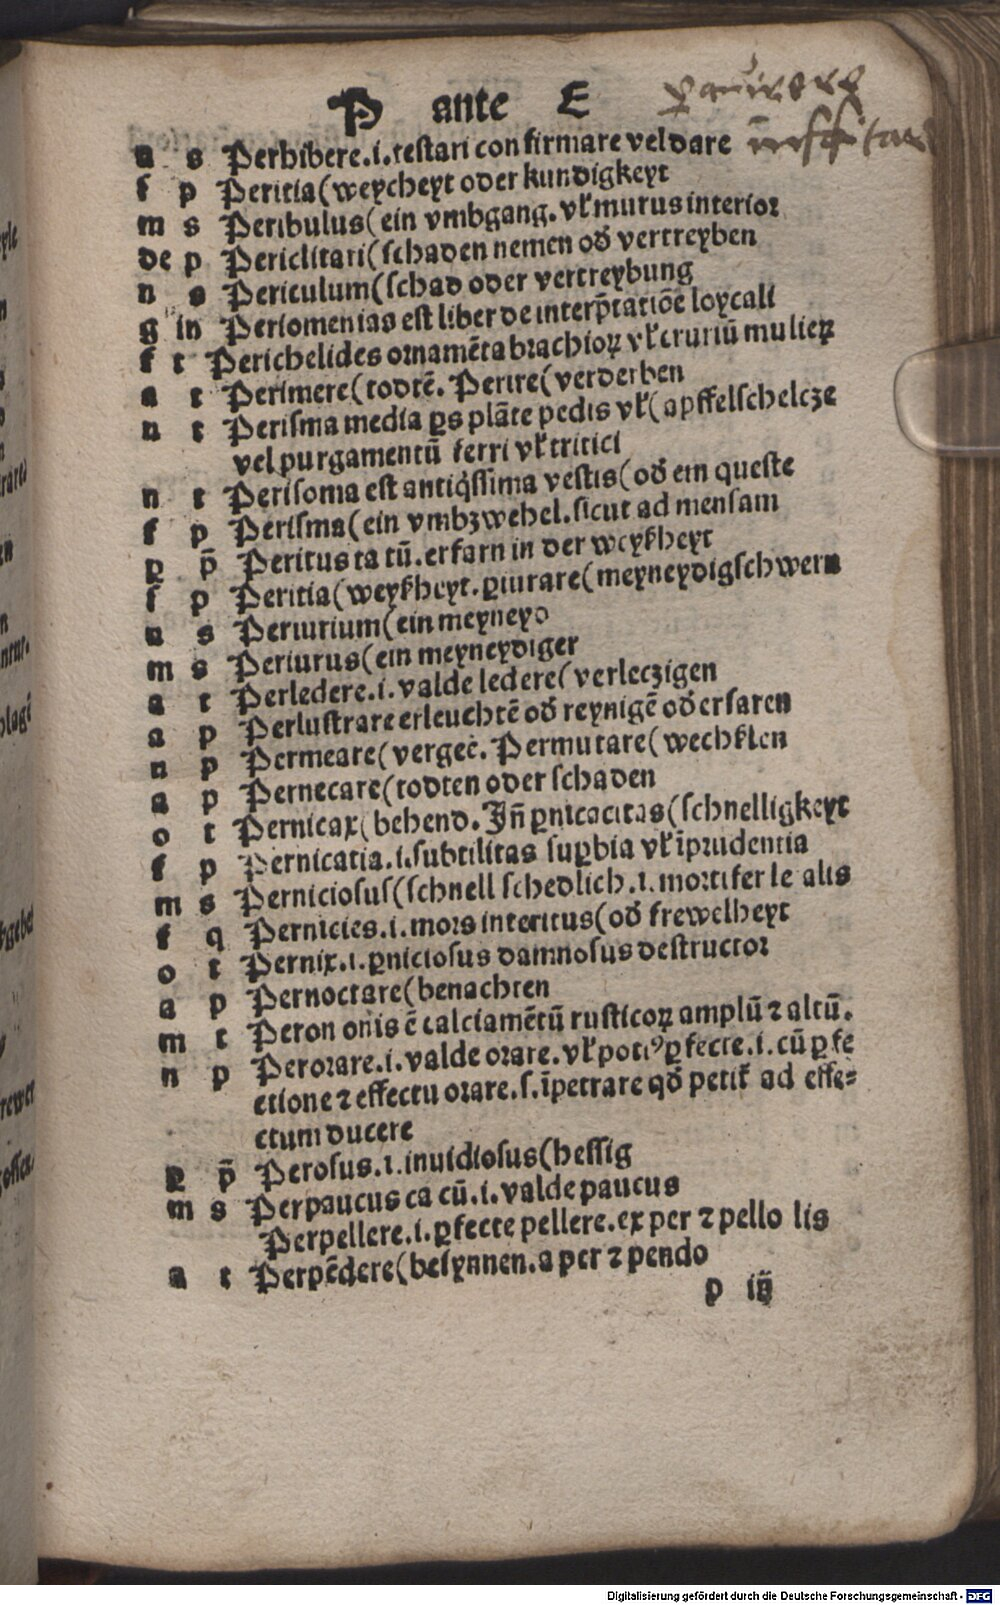 P ante E
a s Perhibere.i.testari confirmare vel dare
f p Peritia(weycheyt oder kundigkeyt
m s Peribulus(ein vmbgang.vł murus interior
de p Periclitari(schaden nemen od̕ vertreyben
n s Periculum(schad oder vertreybung
g in Periomenias est liber de interp̄tatiōe loycali
f t Perichelides ornamēta brachioꝝ vł cruriū mulieꝝ
a t Perimere(todtē. Perire(verderben
n t Perisma media ꝑs plāte pedis vł(apffelschelcze
vel purgamentū ferri vł tritici
n t Perisoma est antiq̇ssima vestis(od̕ ein queste
f p Perisma(ein vmbzwehel.sicut ad mensam
p p̄ Peritus ta tū.erfarn in der weyßheyt
f p Peritia(weyßheyt.ꝑiurare(meyneydig schwern
n s Periurium(ein meyneyd
m s Periurus(ein meyneydiger
a t Perledere.i.valde ledere(verleczigen
a p Perlustrare erleuchtē od̕ reynigē od̕ erfaren
n p Permeare(vergeē. Permutare(wechßlen
a p Pernecare(todten oder schaden
o t Pernicax(behend. Jn̄ ꝑnicacitas(schnelligkeyt
f p Pernicatia.i.subtilitas suꝑbia vł īprudentia
m s Perniciosus(schnell schedlich.i.mortifer le alis
f q Pernicies.i.mors interitus(od̕ frewelheyt
o t Pernix.i.ꝑniciosus damnosus destructor
a p Pernoctare(benachten
m t Peron onis ē calciamētū rusticoꝝ amplū ⁊ altū.
n p Perorare.i.valde orare.vł potiꝰ ꝑfecte.i.cū ꝑfe
ctione ⁊ effectu orare.s.īpetrare qd̕ petit̕ ad effe⸗
ctum ducere
p p̄ Perosus.i.inuidiosus(hessig
m s Perpaucus ca cū.i.valde paucus
Perpellere.i.ꝑfecte pellere.ex per ⁊ pello lis
a t Perpēdere(besynnen.a per ⁊ pendo
p iij
Digitalisierung gefördert durch die Deutsche Forschungsgemeinschaft - DFG